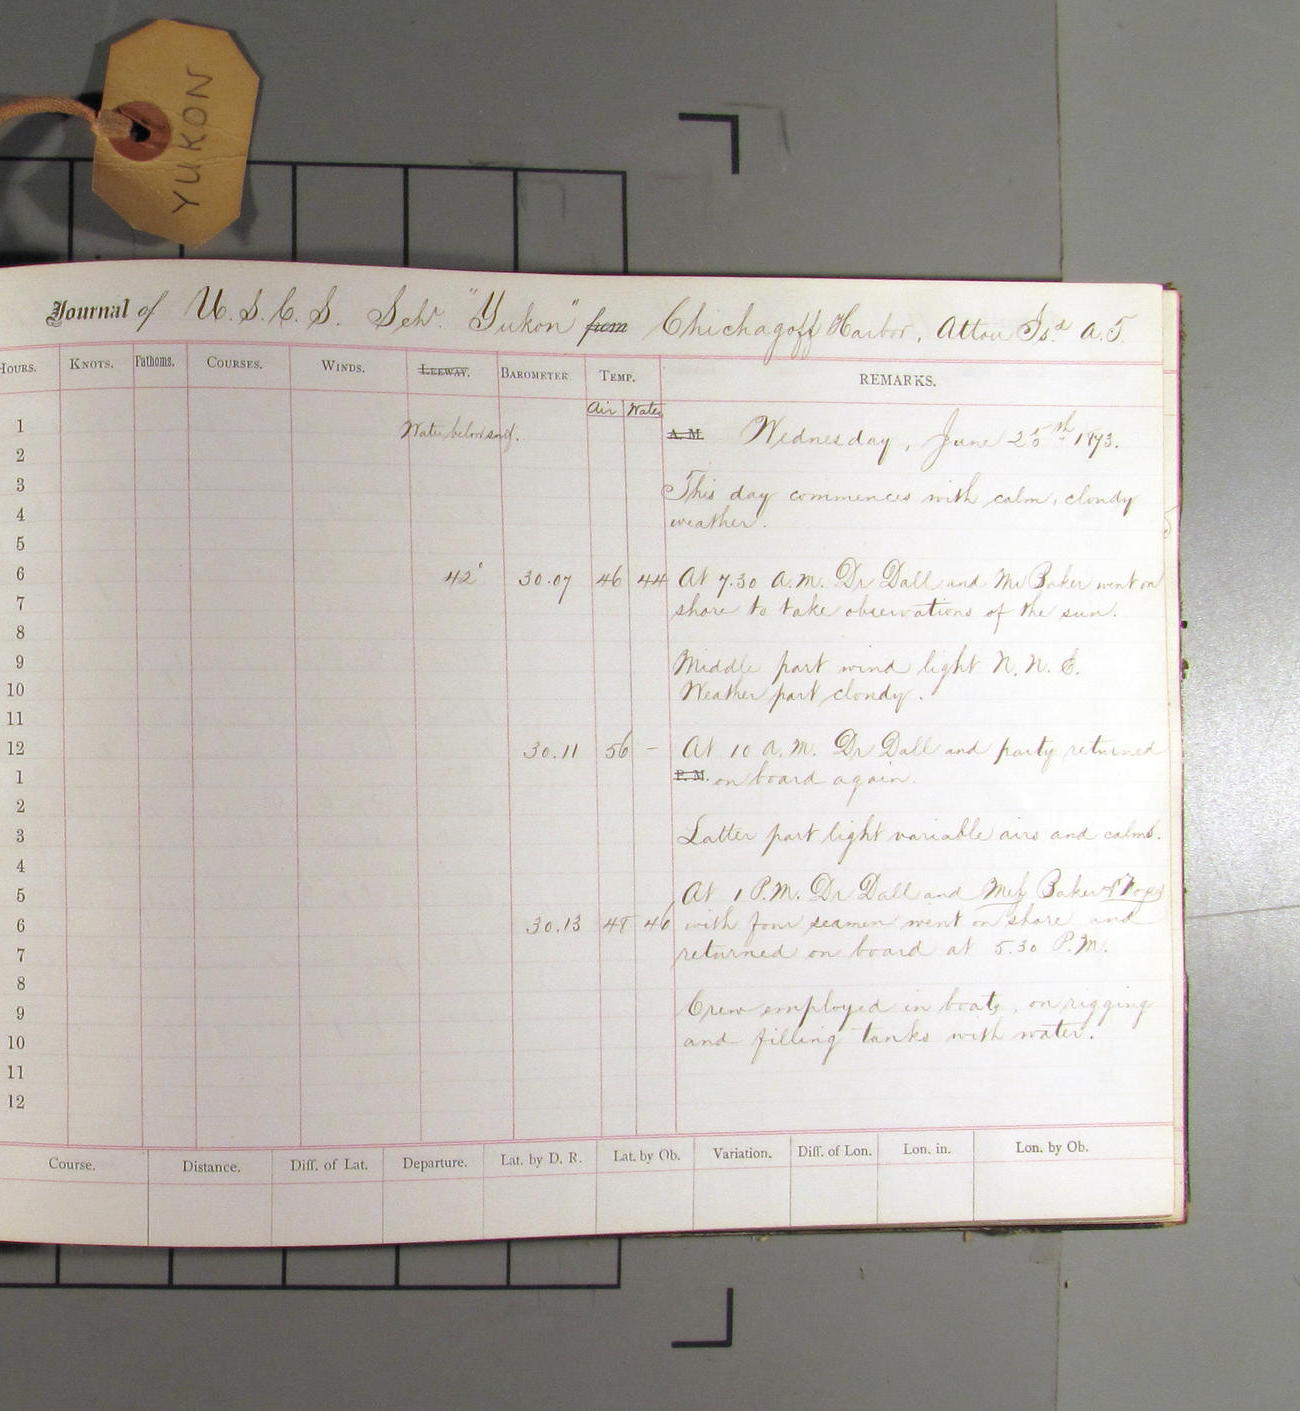 YUKON
Journal of U.S.C.S. Schr. "Yukon" from Chichagoff Harbor, Attou Isd. A.T.
HOURS. KNOTS. Fathoms. COURSES. WINDS. LEEWAY. BAROMETER. TEMP. REMARKS.
Air Water
1 Water below surf. A.M. Wednesday, June 25th 1873.
2
3 This day commences with calm, cloudy
4 weather.
5
6 42' 30.07 46 44 At 7.30 A.M. Dr Dall and Mr Baker went on
7 shore to take observations of the sun.
8
9 Middle part wind light N.N.E.
10 Weather part cloudy.
11
12 30.11 56 – At 10 A.M. Dr Dall and party returned
1 P.M. on board again.
2
3 Latter part light variable airs and calms.
4
5 At 1 P.M. Dr Dall and Baker
6 30.13 48 46 with four seamen went on shore and
7 returned on board at 5.30 P.M.
8
9 Crew employed in boats, on rigging
10 and filling tanks with water.
11
12
Course. Distance. Diff. of Lat. Departure. Lat. by D. R. Lat. by Ob. Variation. Diff. of Lon. Lon. in. Lon. by Ob.